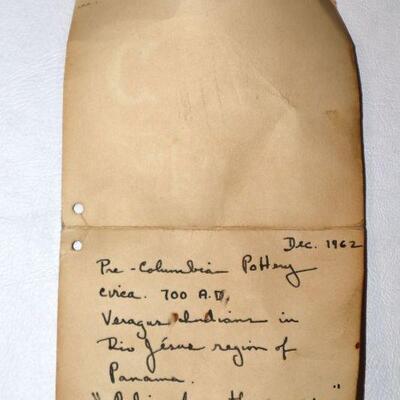 Dec. 1962
Pre-Columbian Pottery
circa. 700 A.D.
Veragus Indians in
Rio Jésus region of
Panama.